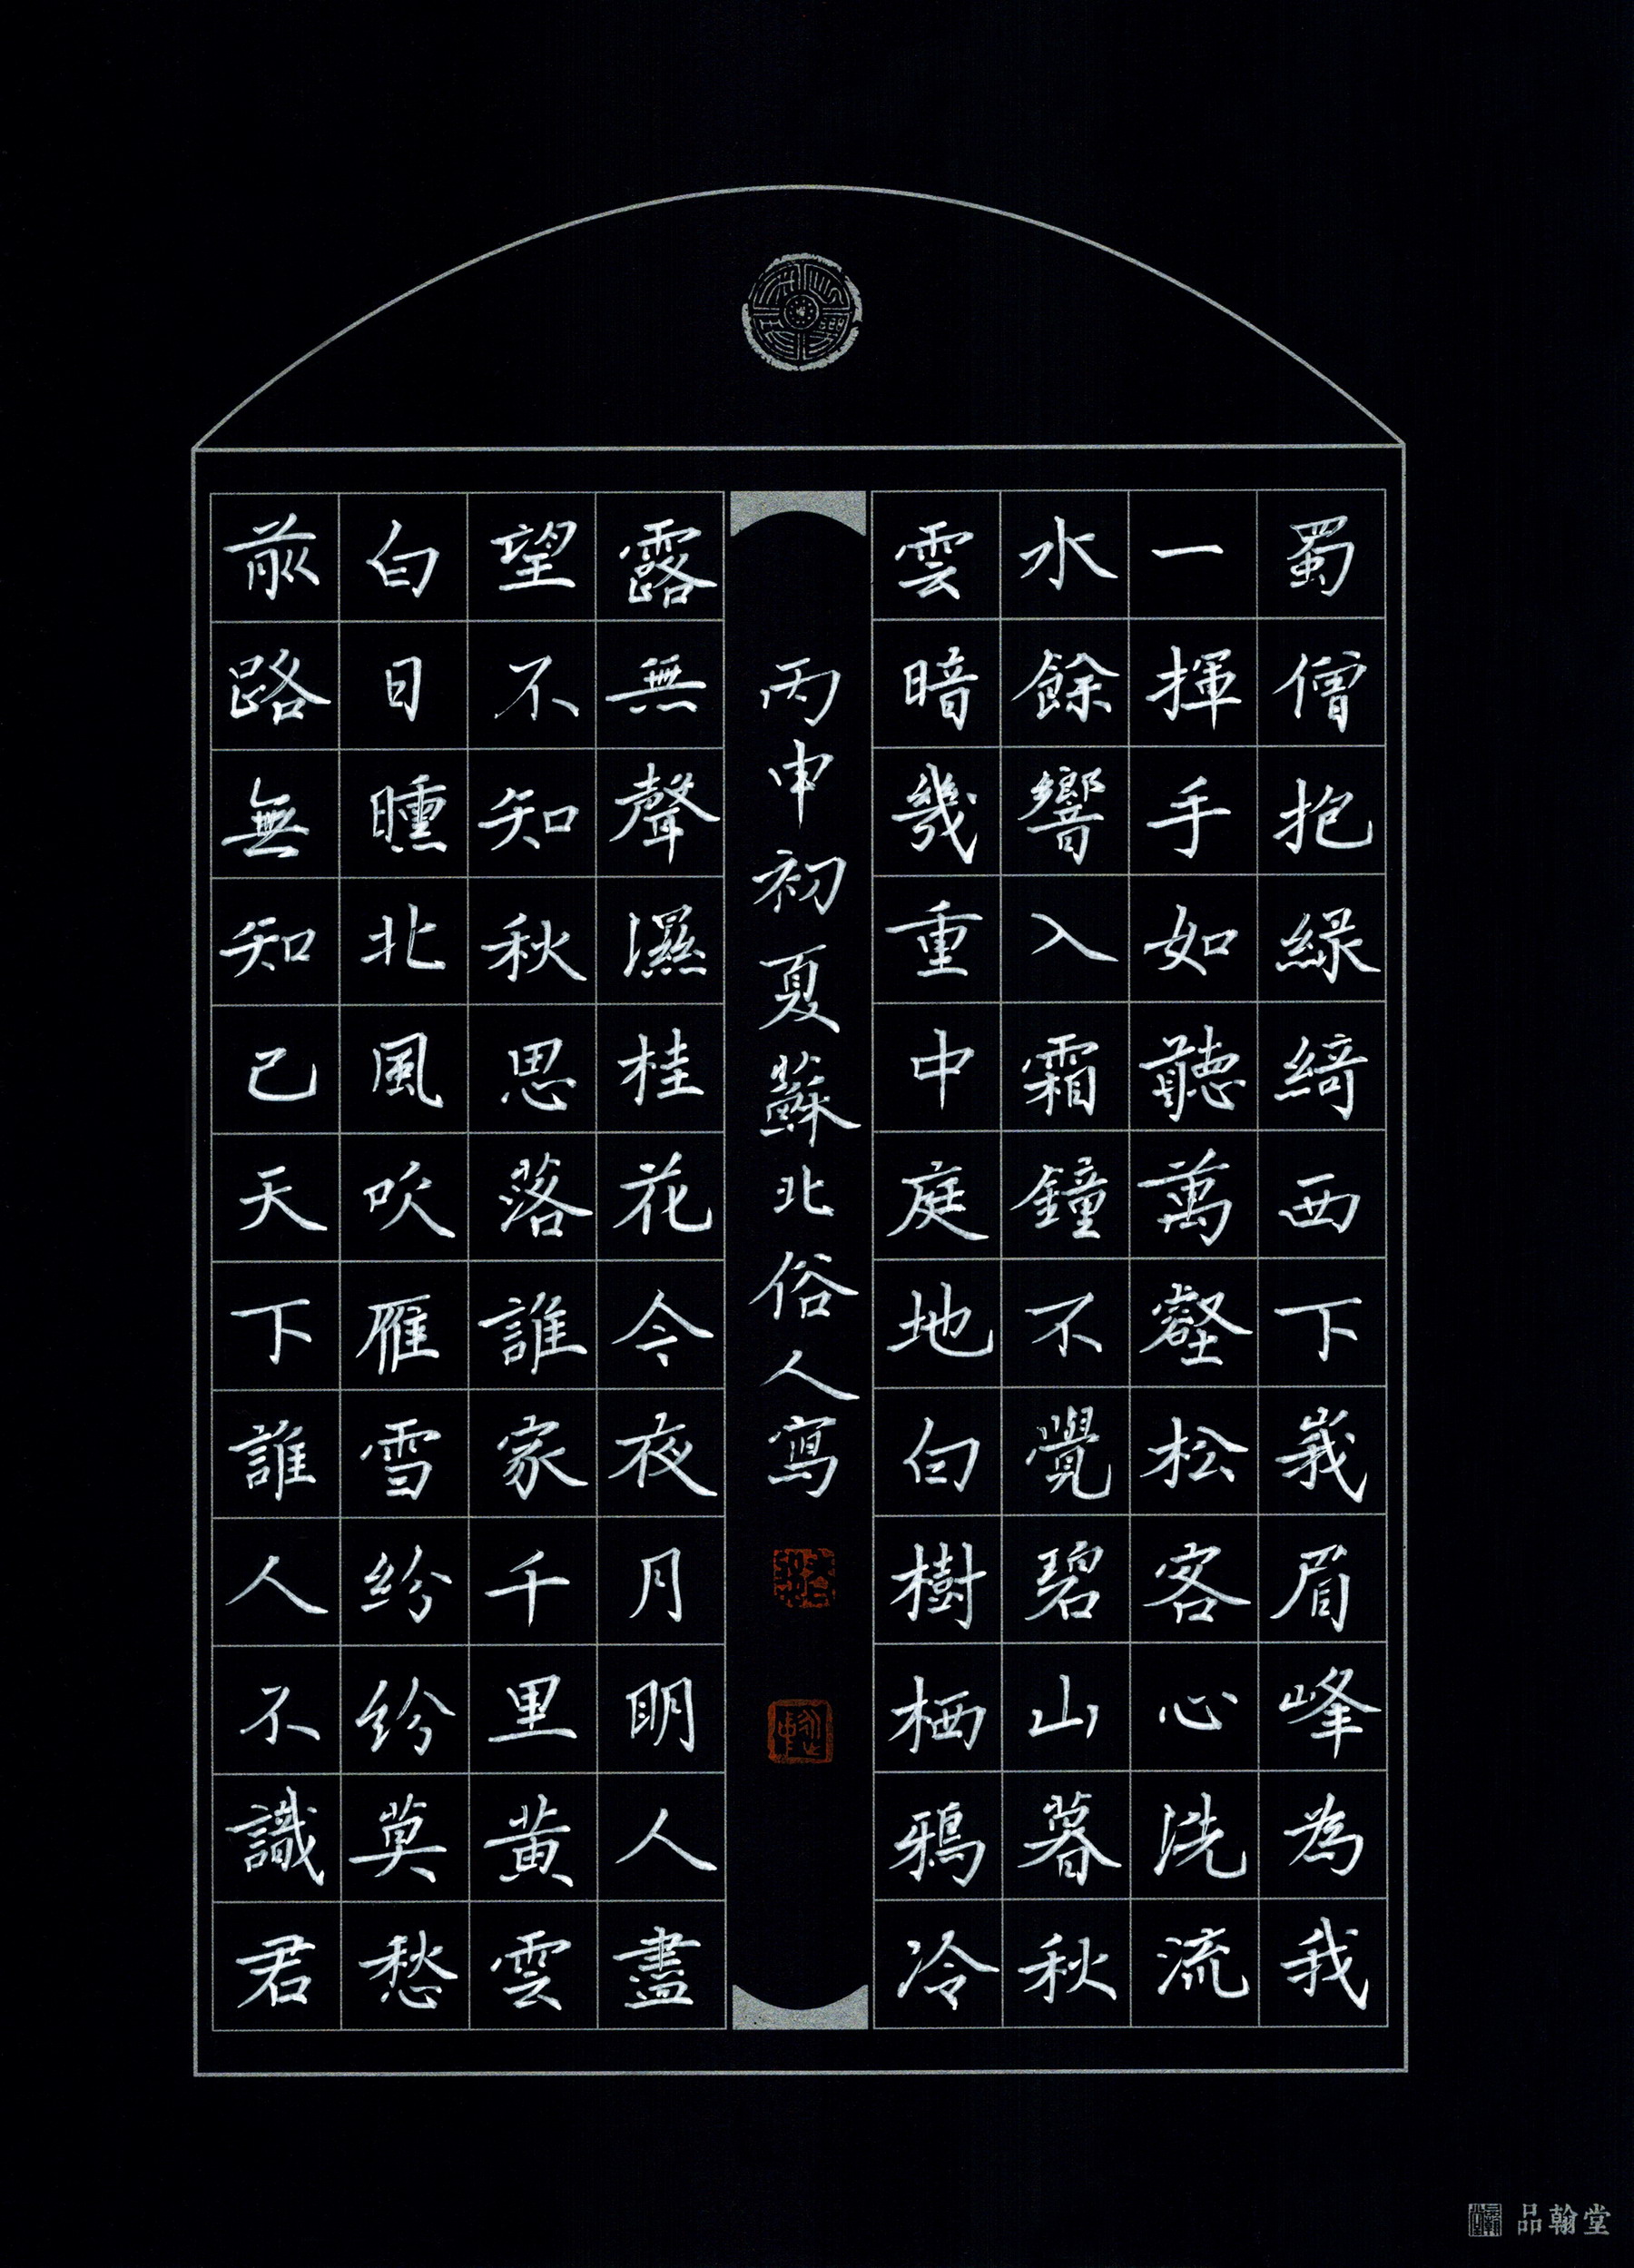 蜀僧抱緑綺西下峩眉峰為我
一揮手如聽萬壑松客心洗流
水餘響入霜鐘不覺碧山暮秋
雲暗幾重中庭地白樹栖鴉冷
丙申初夏蘇北俗人寫
露無聲濕桂花今夜月明人盡
望不知秋思落誰家千里黄雲
白日曛北風吹雁雪紛紛莫愁
前路無知己天下誰人不識君
品翰堂